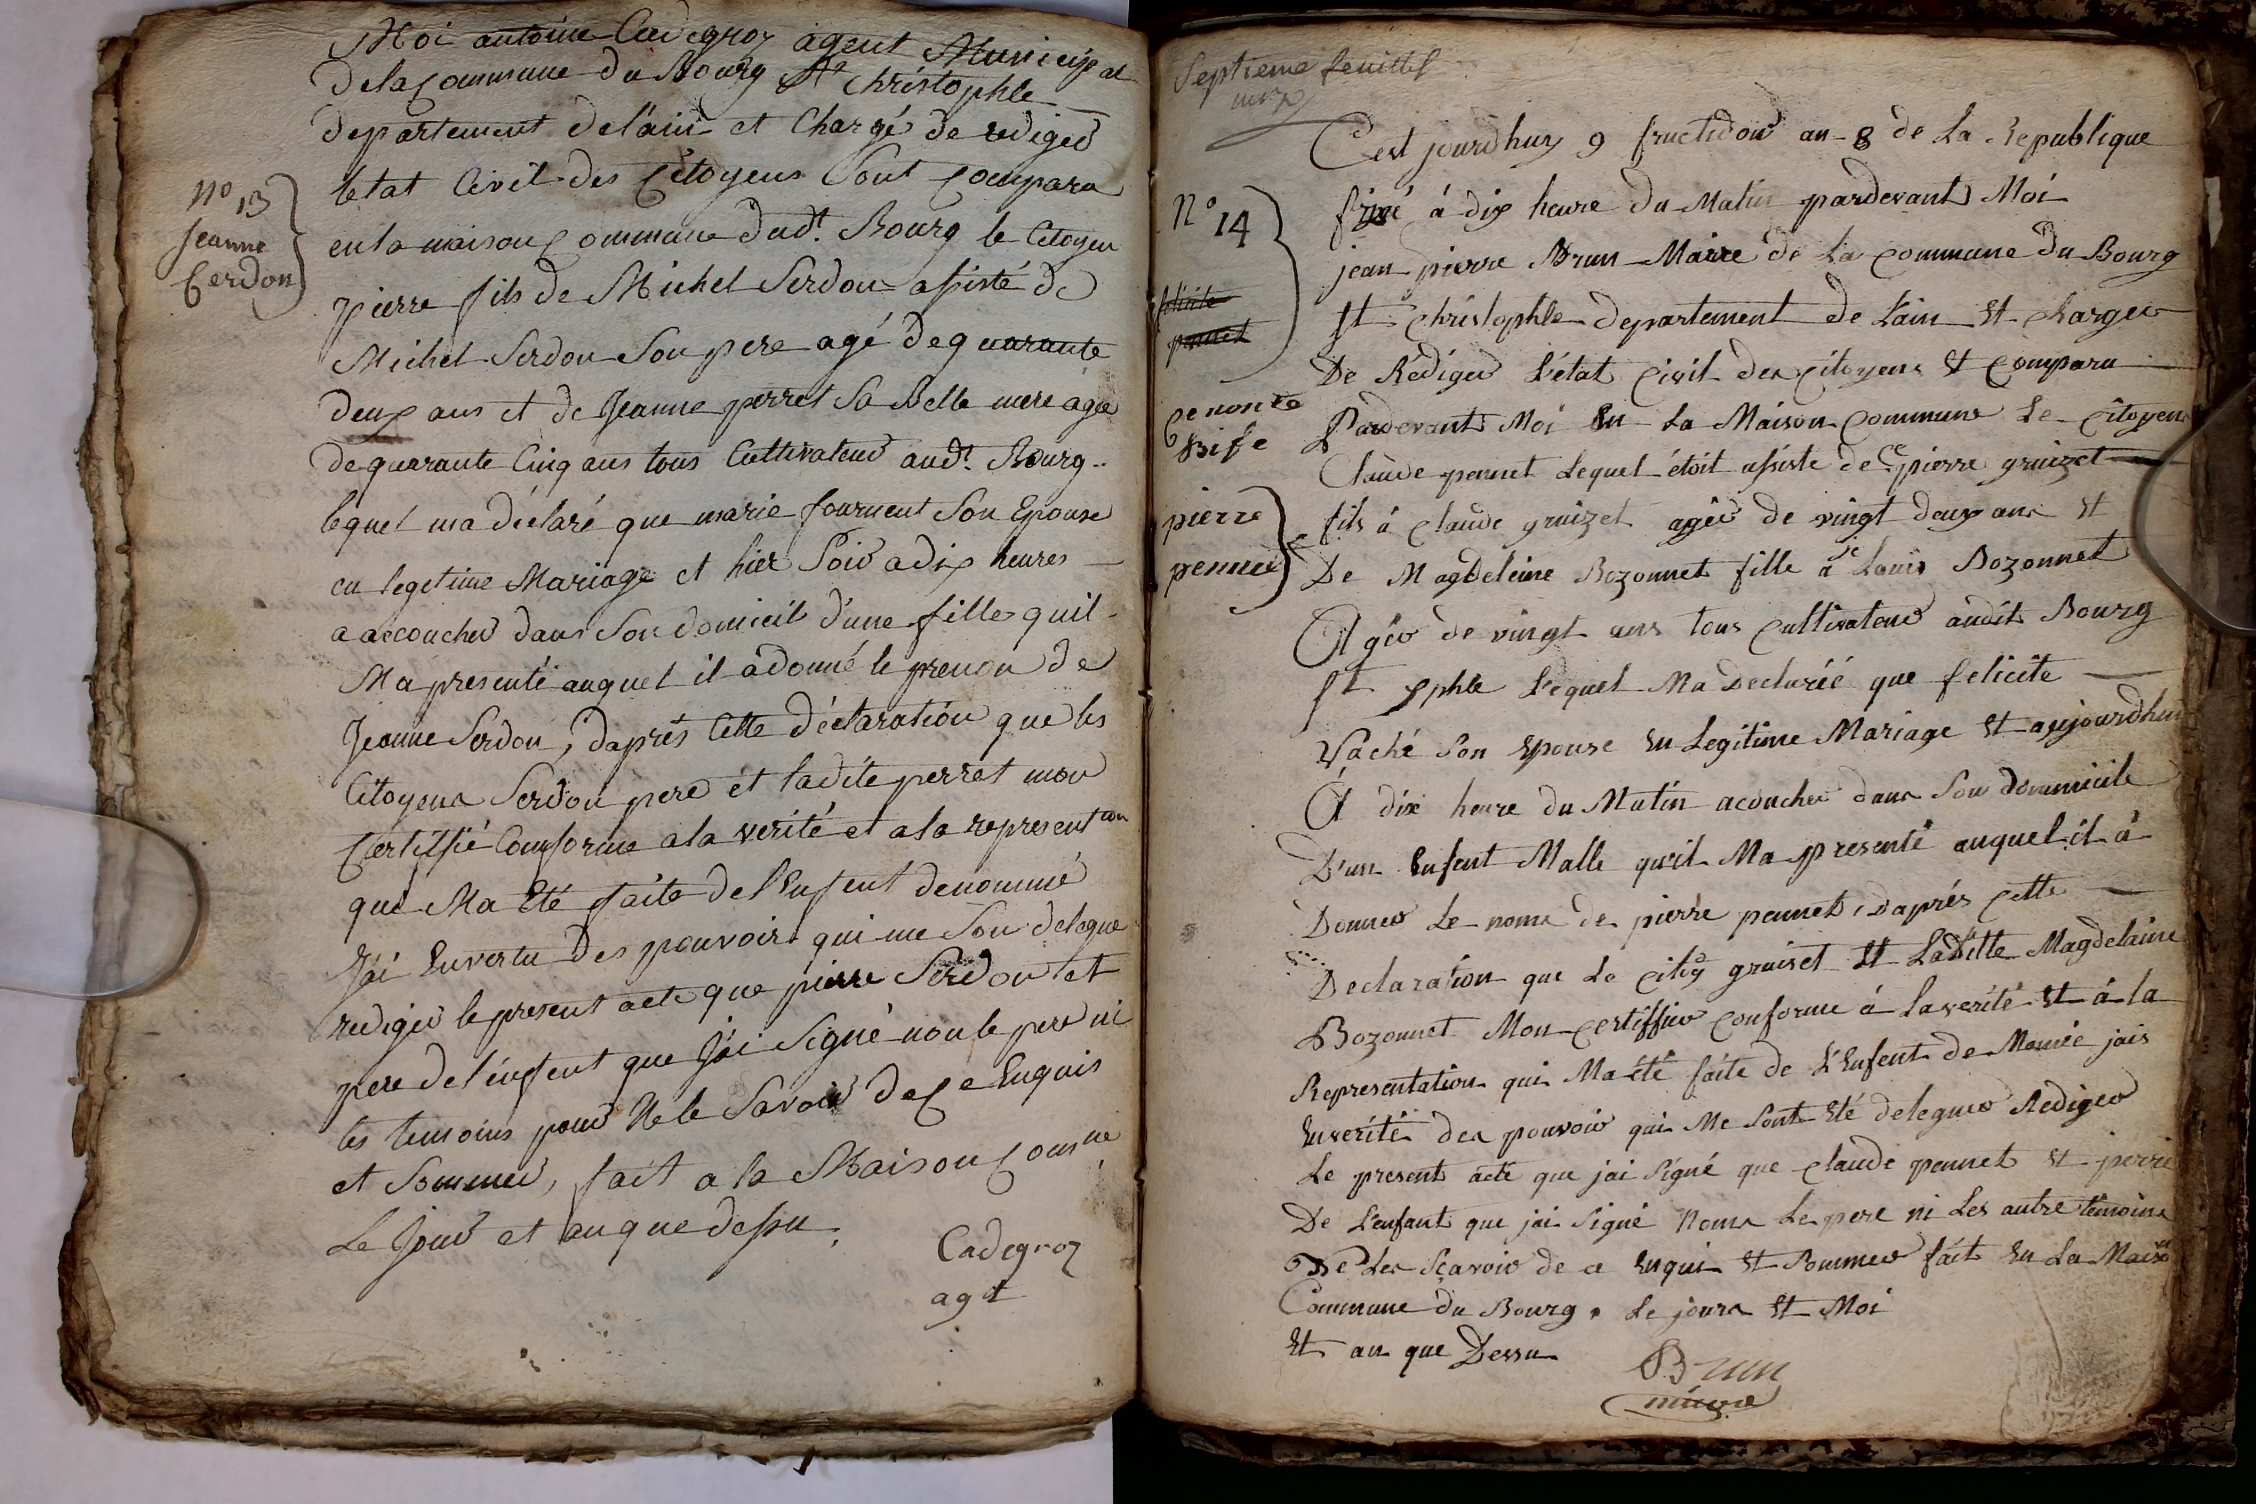 Moi antoine Cadegroz agent Municipal
de la Commune du Bourg St Christophle
departement de l'ain et Chargé de rediger
letat Civil des Citoyens Sont Comparu
en la maison Commune dudt. Bourg le Citoyen
N° 13
Jeanne
Cerdon
pierre fils de Michel Serdon assisté de
Michel Serdon Son pere agé de quarante
deux ans et de Jeanne perret Sa Belle mere agée
de quarante Cinq ans tous Cultivateur audt. Bourg
lequel ma déclaré que marie fournent Son Epouse
en legetime Mariage et hier Soir a dix heures
a accoucher dans Son domicil d'une fille quil
Ma presenté auquel il à donné le prenon de
Jeanne Serdon, daprés Cette déclaration que les
Citoyens Serdon pere et ladite perret mon
Certiffié Conforme a la verité et a la representon
qui Ma Eté faite de l'Enfent denommé
J'ai Envertu Des pouvoirs qui me Son delegue
rediger le present acte que pierre Serdon et
pere de l'enfent que J'ai Signé non le pere ni
les temoins pour Ne le Savoir de Ce Enquis
et Sommer, fait a la Maison Comne
Le Jour et an que dessu.
Cadegroz
agt
Septieme feuillet
C'est jourdhuy 9 fructidor an 8 de La Republique
à dix heure du Matin pardevant Moi
N° 14
jean pierre Brun Maire de La Commune du Bourg
felicite
pennet
St Christophle departement de Lain Et charger
De Rédiger L'état Civil des Citoyens Et Comparu
ce nom
Bife
Pardevant Moi En La Maison Commune Le Citoyen
Claude pennet Lequel étoit assiste de Ce pierre gruizet
pierre
pennet
fils à Claude gruizet agée de vingt deux ans Et
De Magdeleine Bozonnet fille à Je Louis Bozonnet
Agée de vingt ans tous Cultivateur audit Bourg
St xphle Lequel Ma Declaréé que felicite
Vaché Son Epouse En Legitime Mariage Et aujourdhui
A dix heure du Matin acoucher dans Son dommicile
D'un Enfent Malle quil Ma presenté auquel il à
Donner Le nome de pierre pennet, Daprés Cette
Declaration que Le City gruiset Et Laditte Magdelaine
Bozonnet Mon Certiffier Conforme à La verité Et à la
Representation qui Ma été faite de L'Enfent de Nomée jais
En verité des pouvoir qui Me Sont Eté deleguer Rediger
Le present acte que jai Signé que Claude pennet Et perre
De L'enfant que jai Signé Noms Le pere ni Les autre temoins
De Les Sçavoir de ce Enqui Et Sommer fait En La Maison
Commune du Bourg Le jours Et Moi
Et an que Dessu
Brun
maire